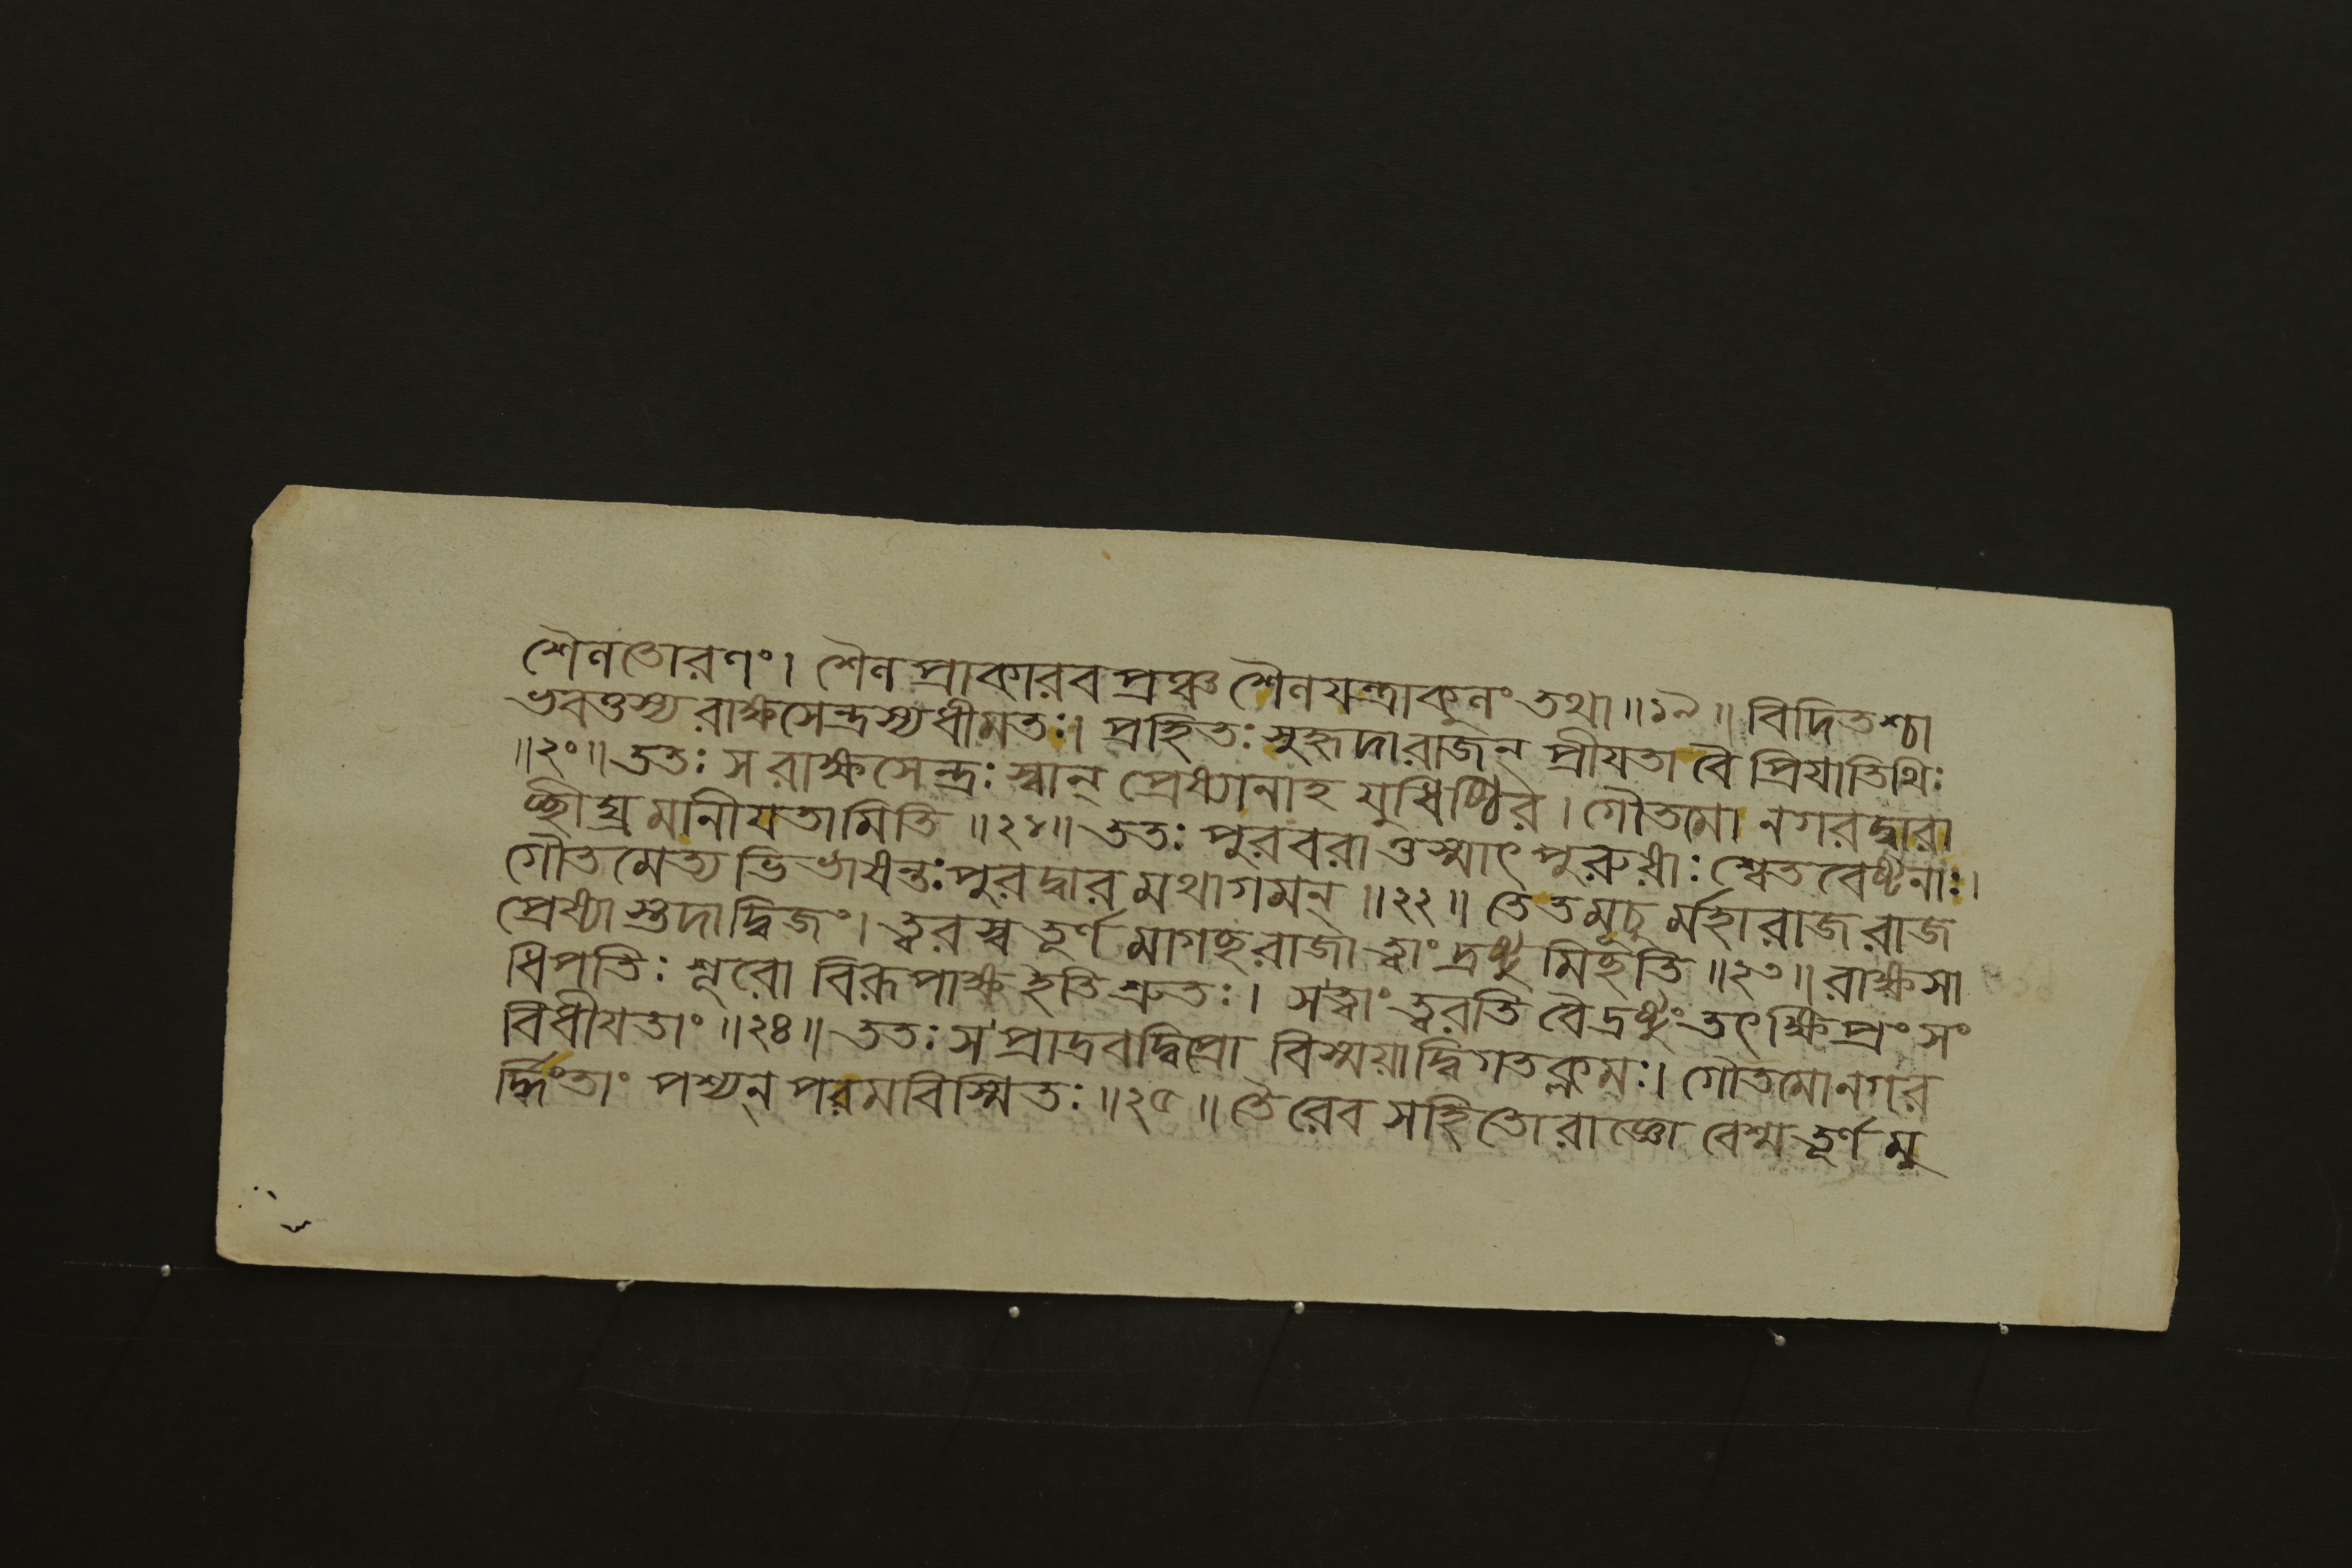 শৈলতোরণং। শৈলপ্রাকারবপ্রঞ্চ শৈলযন্ত্রাকুলং তথা॥১৯॥ বিদিতশ্চা
ভবত্তস্য রাক্ষসেন্দ্রস্যধীমতঃ। প্রহিতঃ সুহৃদারাজন্ প্রীযতা বৈ প্রিযাতিথিঃ
॥২০॥ ততঃ স রাক্ষসেন্দ্রঃ স্বান্ প্রেষ্যানাহ যুধিষ্ঠির। গৌতমো নগরদ্বারা
চ্ছীঘ্রমানীযতামিতি॥২১॥ ততঃ পুরবরাত্তস্মাৎ পুরুষাঃ শ্বেতবেষ্টনাঃ।
গৌতমেত্যভিভাষন্তঃ পুরদ্বারমথাগমন্॥২২॥ তেতমূচুর্মহারাজ রাজ
প্রেষ্যাস্তদাদ্বিজং। ত্বরস্ব তূর্ণমাগচ্ছরাজা ত্বাং দ্রষ্টুমিচ্ছতি॥২৩॥ রাক্ষসা
ধিপতিঃ শূরো বিরূপাক্ষ ইতিশ্রুতঃ। সত্বাং ত্বরতি বৈদ্রষ্টুং তৎক্ষিপ্রং সং
বিধীযতাং॥২৪॥ ততঃ স প্রাদ্রবদ্বিপ্রো বিস্ময়াদ্বিগতক্লমঃ। গৌতমোনগর
র্দ্ধিংতাং পশ্যন্ পরমবিস্মিতঃ॥২৫॥ তৈরেব সহিতোরাজ্ঞো বেশ্মতূর্ণমু